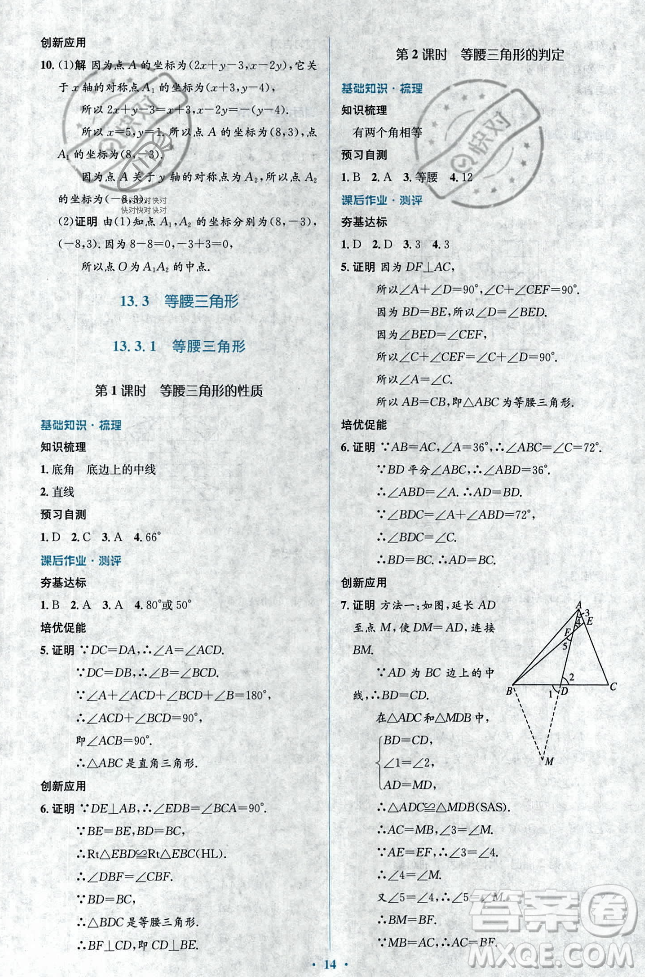 创新应用
10. (1)解 因为点 A 的坐标为(2x+y-3,x-y),它关
于 x 轴的对称点 A₁ 的坐标为(x+3,y-4),
所以 2x+y-3=x+3,x-y=-(y-4).
所以 x=5,y=1,所以点 A 的坐标为(8,3),点
A₁ 的坐标为(8,-3).
因为点 A 关于 y 轴的对称点为 A₂,所以点 A₂ 的坐标为
(-8,3).
快对快对快对
快对快对快对
(2)证明 由(1)知点 A₁,A₂ 的坐标分别为(8,-3),
(-8,3).因为 8-8=0,-3+3=0,
所以点 O 为 A₁A₂ 的中点.
13.3 等腰三角形
13.3.1 等腰三角形
第 1 课时 等腰三角形的性质
基础知识·梳理
知识梳理
1. 底角 底边上的中线
2. 直线
预习自测
1. D 2. C 3. A 4. 66°
课后作业·测评
夯基达标
1. B 2. A 3. A 4. 80°或 50°
培优促能
5. 证明 ∵DC=DA,∴∠A=∠ACD.
∵DC=DB,∴∠B=∠BCD.
∵∠A+∠ACD+∠BCD+∠B=180°,
∴∠ACD+∠BCD=90°,
即∠ACB=90°.
∴△ABC 是直角三角形.
创新应用
6. 证明 ∵DE⊥AB,∴∠EDB=∠ACB=90°.
∵BE=BE,BD=BC,
∴Rt△EBD≌Rt△EBC(HL).
∴∠DBF=∠CBF.
∵BD=BC,
∴△BDC 是等腰三角形.
∴BE 垂直平分 CD.
第 2 课时 等腰三角形的判定
基础知识·梳理
知识梳理
有两个角相等
预习自测
1. B 2. A 3. 等腰 4. 12
课后作业·测评
夯基达标
1. D 2. D 3. 3 4. 3
5. 证明 因为 DF⊥AC,
所以∠A+D=90°,∠C+∠CEF=90°.
因为 BD=BE,
所以∠D=∠BED.
因为∠BED=∠CEF,所以∠D=∠CEF.
所以∠C+∠CEF=∠A+∠D=90°.
所以∠A=∠C.
所以 AB=CB,即△ABC 是等腰三角形.
培优促能
6. 证明 ∵AB=AC,∠A=36°,∴∠ABC=∠C=72°.
∵BD 平分∠ABC,∴∠ABD=36°.
∴∠ABD=∠A.∴AD=BD.
∴∠BDC=∠A+∠ABD=72°,
∴∠BDC=∠C.
∴BD=BC.∴AD=BC.
创新应用
7. 证明 方法一:如图,延长 AD
至点 M,使 DM=AD,连接
BM.
∵AD 为 BC 边上的中
线,∴BD=CD.
在△ADC 和△MDB 中,
BD=CD,
∠1=∠2,
DM=AD,
∴△ADC≌△MDB(SAS).
∴∠M=∠3,BM=AC.
∵AE=EF,
∴∠4=∠3,∴∠4=∠M.
又∠5=∠4,∴∠5=∠M.
∴BM=BF.∴AC=BF.
A
3
4
E
F
5
2
B
1
D
C
M
14
答案圈
MXQE.COM